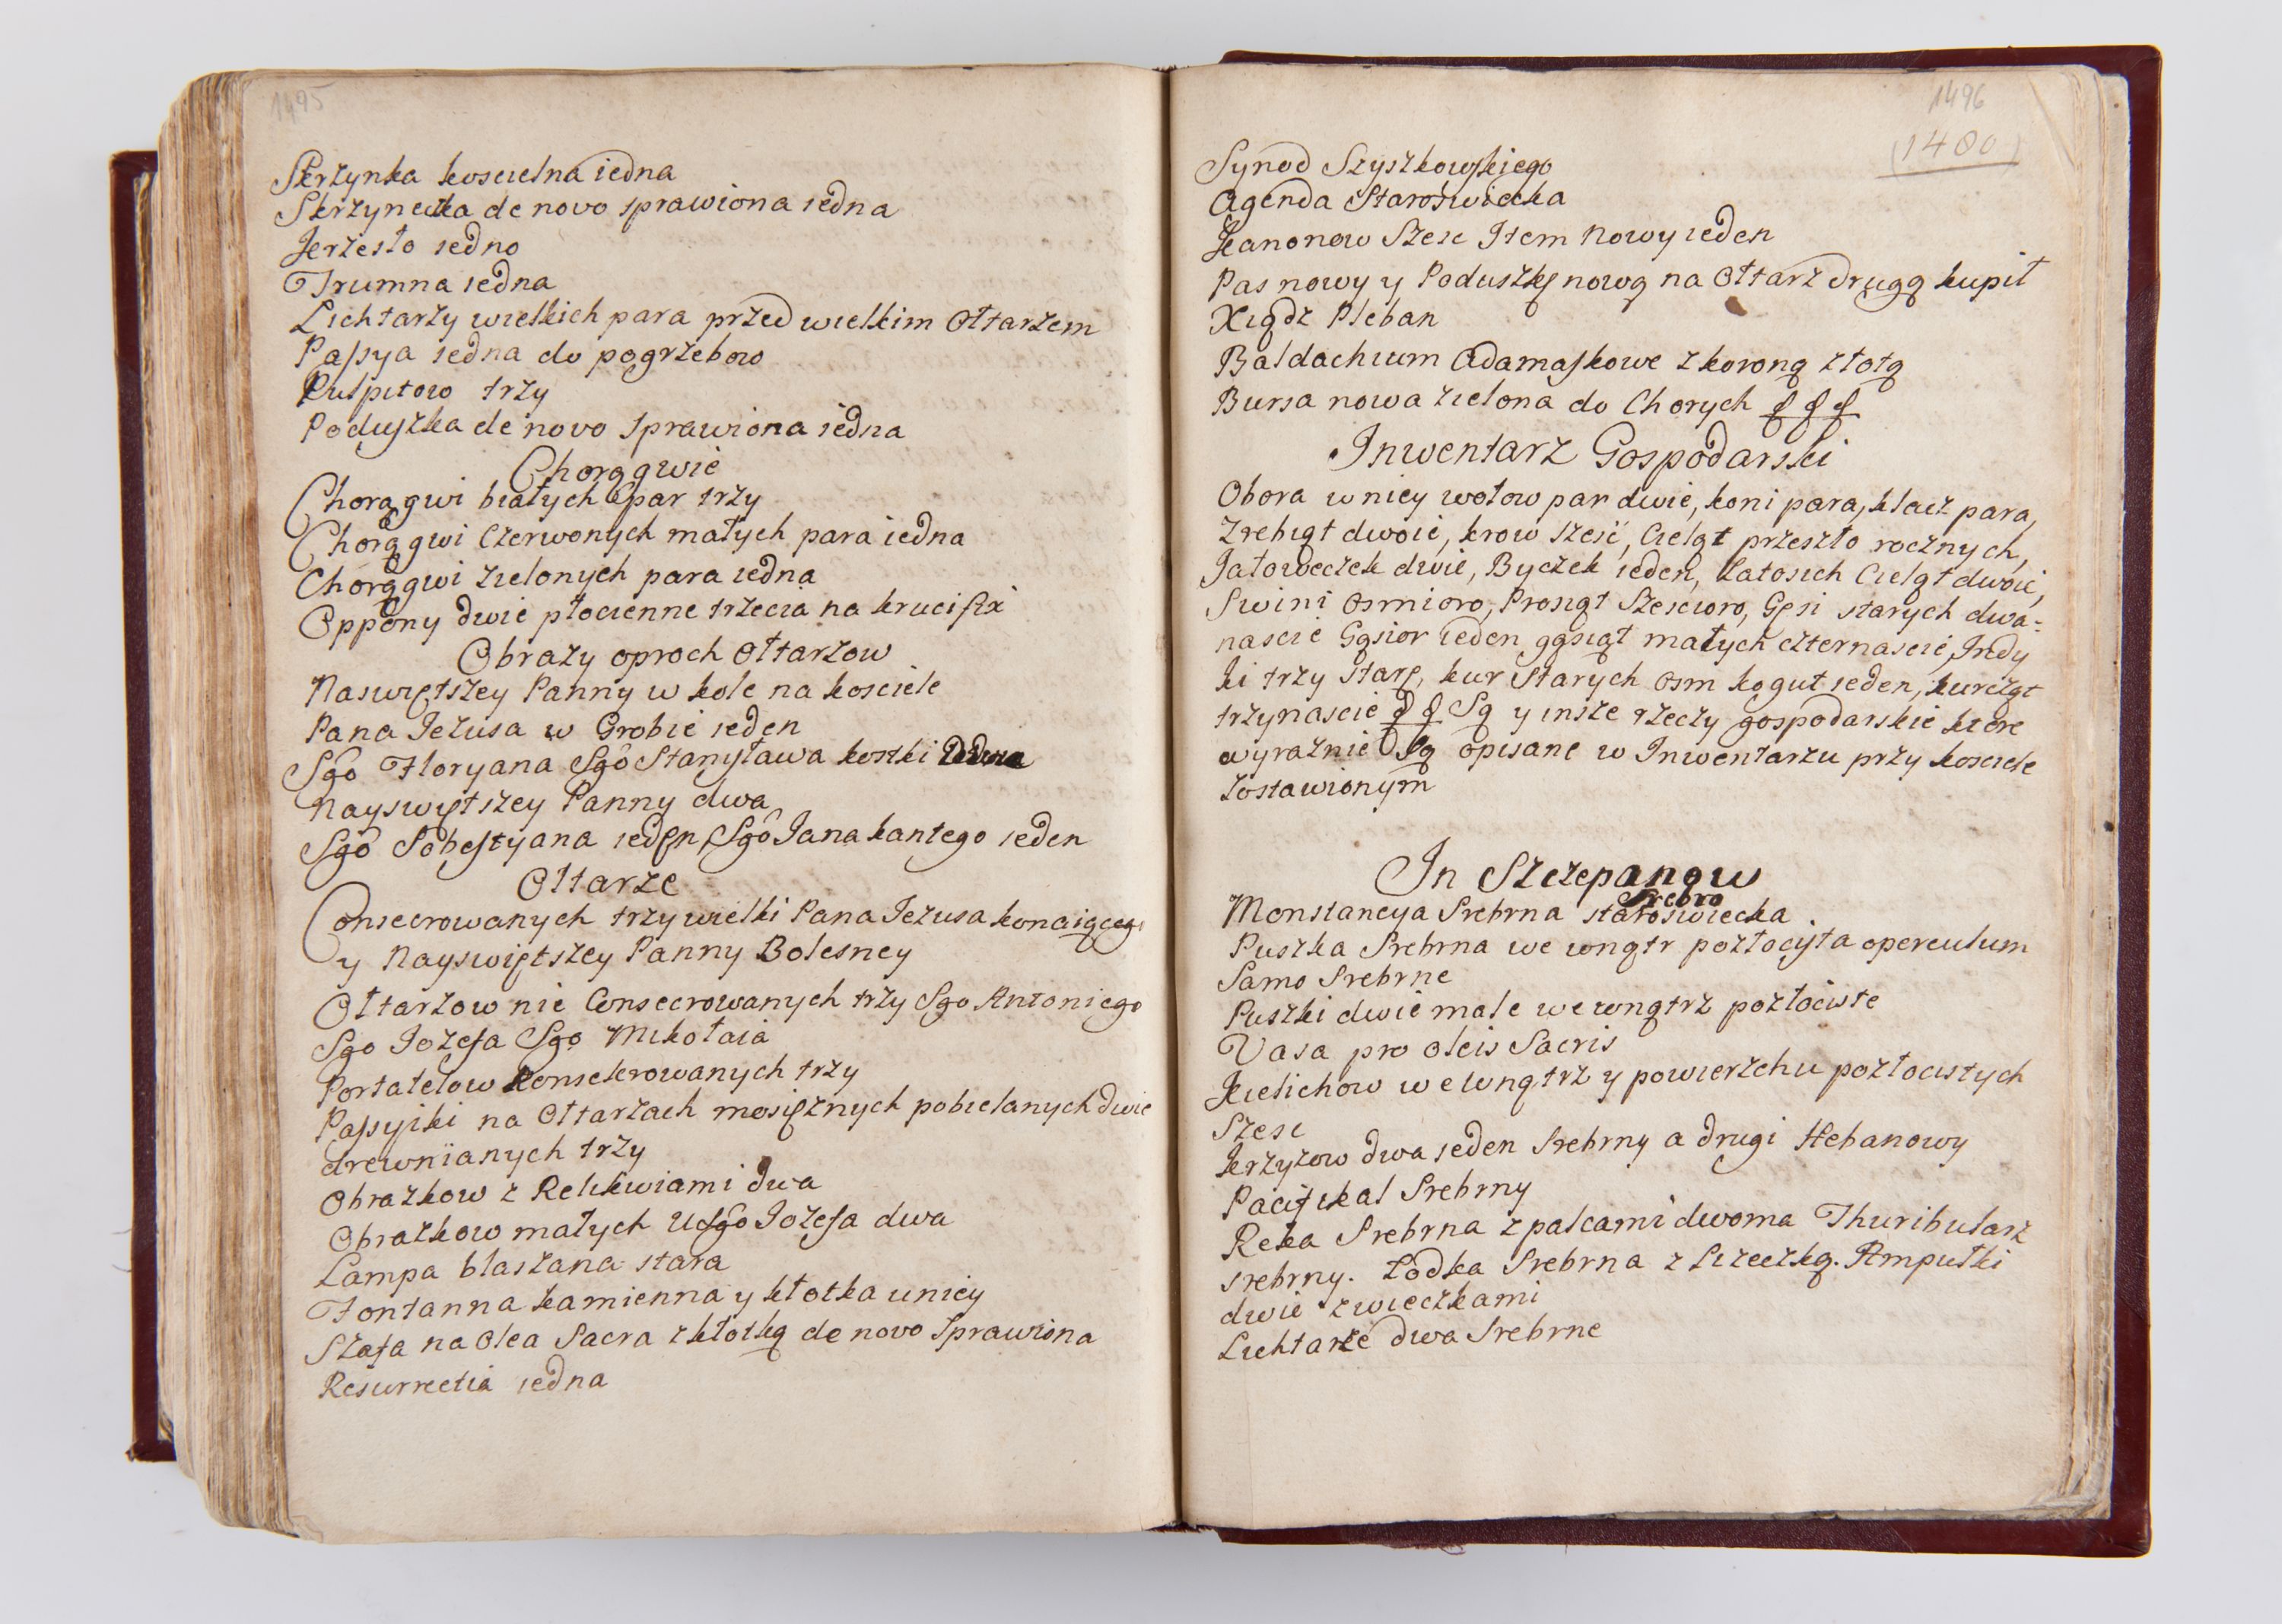 1495
Skrzynka koscielna iedna
Skrzyneczka de novo sprawiona iedna
Krzesło iedno
Trumna iedna
Lichtarzy wielkich para przed wielkim Ołtarzem
Passya iedna do pogrzebow
Pulpitow trzy
Poduszka de novo sprawiona iedna
Chorągwie
Chorągwi białych par trzy
Chorągwi Czerwonych małych para iedna
Chorągwi zielonych para iedna
Oppony dwie płocienne trzecia na krucifix
Obrazy oproch Ołtarzow
Naswiętszey Panny w kole na kosciele
Pana Jezusa w Grobie ieden
Sgo Floryana Sgo Stanysława kostki
Nayswiętszey Panny dwa
Sgo Sobestyana ieden Sgo Jana kantego ieden
Ołtarze
Consecrowanych trzy wielki Pana Jezusa konaiącego
y Nayswiętszey Panny Bolesney
Ołtarzow nie Consecrowanych trzy Sgo Antoniego
Sgo Jozefa Sgo Mikołaia
Portatelow konsekrowanych trzy
Passyiki na Ołtarzach mosiężnych pobielanych dwie
drewnianych trzy
Obrazkow z Relikwiami dwa
Obrazkow małych U Sgo Jozefa dwa
Lampa blaszana stara
Fontanna kamienna y kłotka u niey
Szafa na Olea Sacra z kłotką de novo sprawiona
Resurrectia iedna
1496
(1480)
Synod Szyszkowskiego
Agenda Staroswiecka
Kanonow Szesc Item Nowy ieden
Pas nowy y Poduszkę nową na Ołtarz drugą kupił
Xiądz Pleban
Baldachium Adamaskowe z koroną złotą
Bursa nowa zielona do Chorych
Inwentarz Gospodarski
Obora w niey wołow par dwie, koni para, klacz para,
Zrebiąt dwoie, krow szesć, Cieląt przeszło rocznych,
Jałoweczek dwie, Byczek ieden, Latosich Cieląt dwoie,
Swini osmioro, Prosiąt Szescioro, Gęsi starych dwa=
nascie Gąsior ieden gąsiąt małych czternascie, Indy
ki trzy starę, kur starych osm kogut ieden, kurcząt
trzynascie Są y insze rzeczy gospodarskie ktore
wyraznie Są opisane w Inwentarzu przy kosciele
zostawionym
In Szczepanow
Srebro
Monstancya Srebrna staroswiecka
Puszka Srebrna we wnątr pozłocista operculum
Samo Srebrne
Puszki dwie małe we wnątrz pozłociste
Vasa pro oleis Sacris
Kielichow we wnątrz y powierzchu pozłocistych
Szesc
Krzyzow dwa ieden Srebrny a drugi Hebanowy
Pacifikal Srebrny
Reka Srebrna z palcami dwoma Thuribularz
srebrny. Łodka Srebrna z Łizeczką. Ampułki
dwie z wieczkami
Lichtarze dwa Srebrne